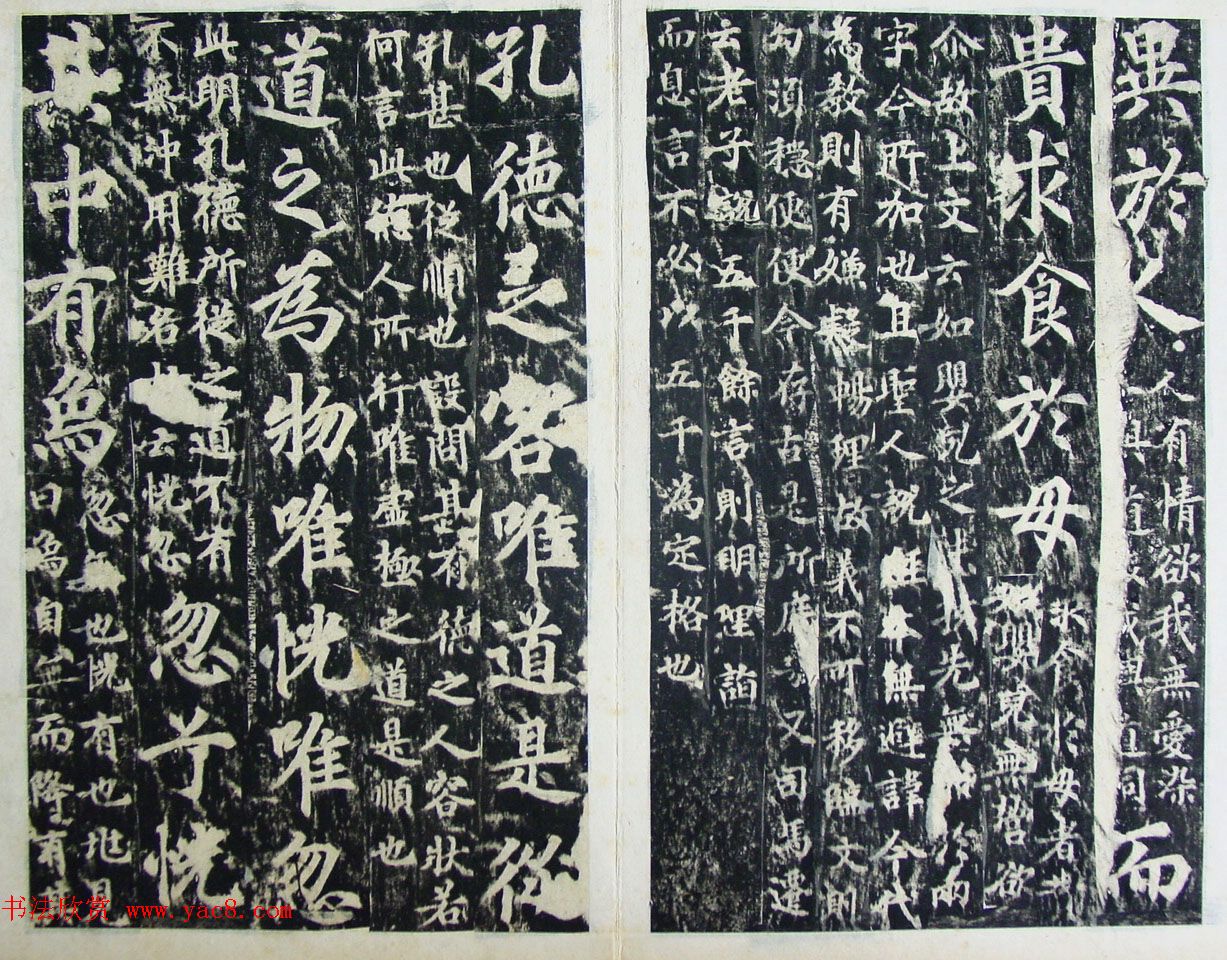 異於人人有情欲我無愛染
道同而
貴求食於母求食於母者
如嬰兒無營欲
尒故上文云如嬰兒之先無求於兩
字今所加也且聖人說經本無避諱今代
為教則有嫌疑暢理故義不可移臨文則
句須穩便便今存古是所庶又司馬遷
云老子說五千餘言則明理詣
而息言不必以五千為定格也
孔德之容唯道是從
孔甚也從順也設問甚有德之人容狀若
何言此德人所行唯虛極之道是順也
道之為物唯恍唯忽
此明孔德所從之道不有
不無沖用難名故云恍忽
忽兮恍
其中有焉忽無也恍有也兆見
曰焉自無而降有
书法欣赏 www.yac8.com